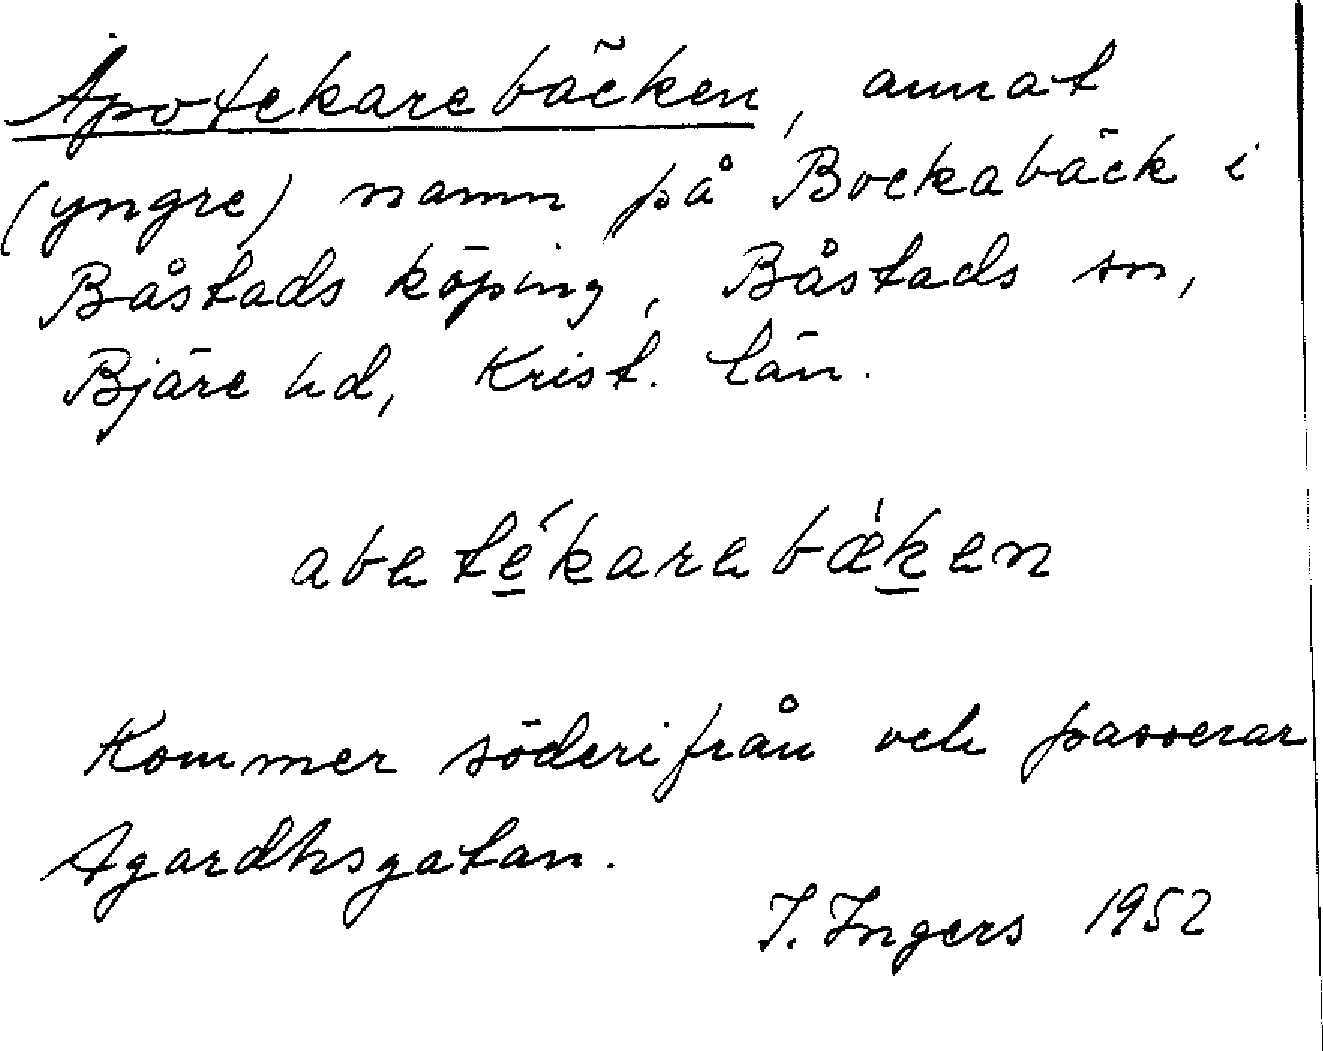 Apotekarebäcken, annat
(yngre) namn på Bockabäck i
Båstads köping, Båstads sn,
Bjäre hd, Krist. län.
abetékarebǽken
Kommer söderifrån och passerar
Agardhsgatan.
I. Ingers 1952